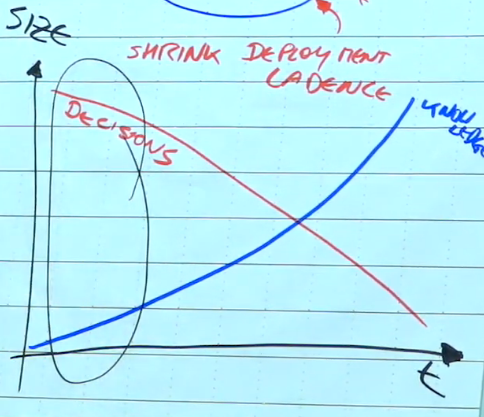 SIZE
SHRINK DEPLOYMENT
CADENCE
DECISIONS
KNOW
LEDGE
t